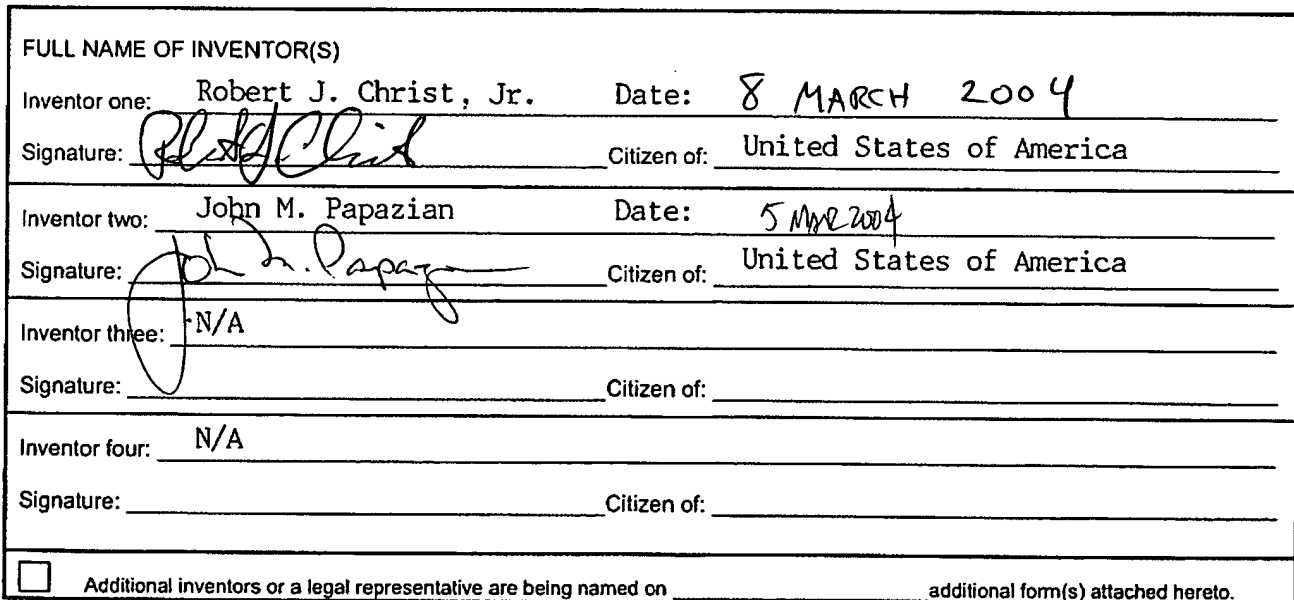 FULL NAME OF INVENTOR(S)
Inventor one: Robert J. Christ, Jr. Date: 8 MARCH 2004
Signature: Robert J Christ Citizen of: United States of America
Inventor two: John M. Papazian Date: 5 MAR 2004
Signature: John M. Papazian Citizen of: United States of America
Inventor three: N/A
Signature: Citizen of:
Inventor four: N/A
Signature: Citizen of:
Additional inventors or a legal representative are being named on additional form(s) attached hereto.